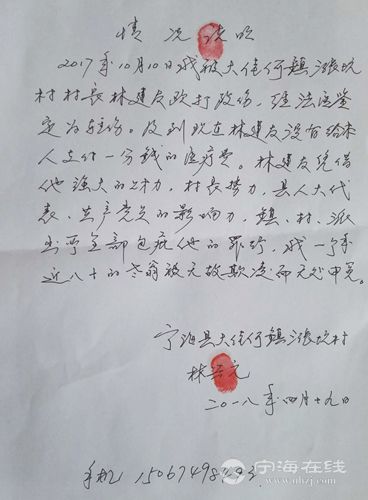 情况说明
2017年10月10日我被大佳何镇涨坑
村村长林建友殴打致伤，经法医鉴
定为轻伤。及到现在林建友没有给本
人支付一分钱的医疗费。林建友凭借
他强大的财力，村长势力，县人大代
表、共产党员的影响力，镇、村、派
出所全部包庇他的罪行，我一个年
近八十的老翁被无故欺凌而无处申冤。
宁海县大佳何镇涨坑村
林
二〇一八年四月十九日
手机 15067498
宁海在线
www.nhzj.com